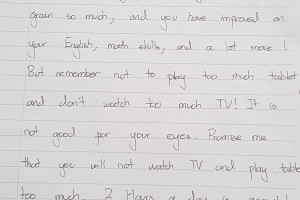 grown so much, and you have improved on
your English, math skills, and a lot more!
But remember not to play too much tablet
and don't watch too much TV! It is
not good for your eyes. Promise me
that you will not watch TV and play table
too much. 2 Hours a day is